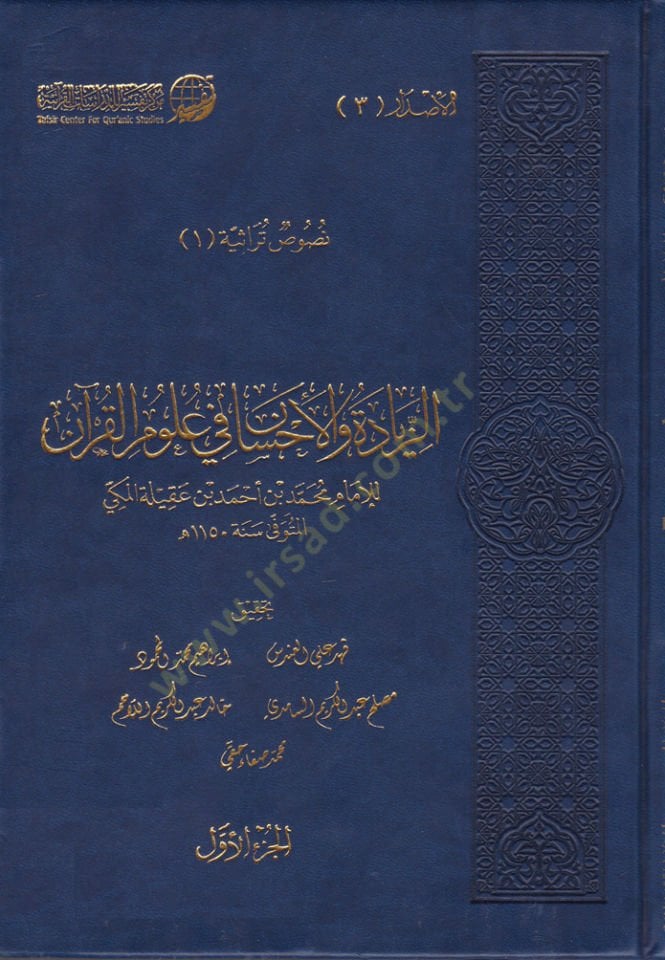 الإصدار (٣)
مركز تفسير للدراسات القرآنية
Tafsir Center For Qur'anic Studies
تفسير
نصوص تراثية (١)
الزيادة والإحسان في علوم القرآن
للإمام محمد بن أحمد بن عقيلة المكي
المتوفى سنة ١١٥٠هـ
تحقيق
فهد علي العندس إبراهيم محمد المحمود
مصلح عبد الكريم السامدي خالد عبد الكريم اللاحم
محمد صفاء حقي
الجزء الأول
www.irsad.com.tr